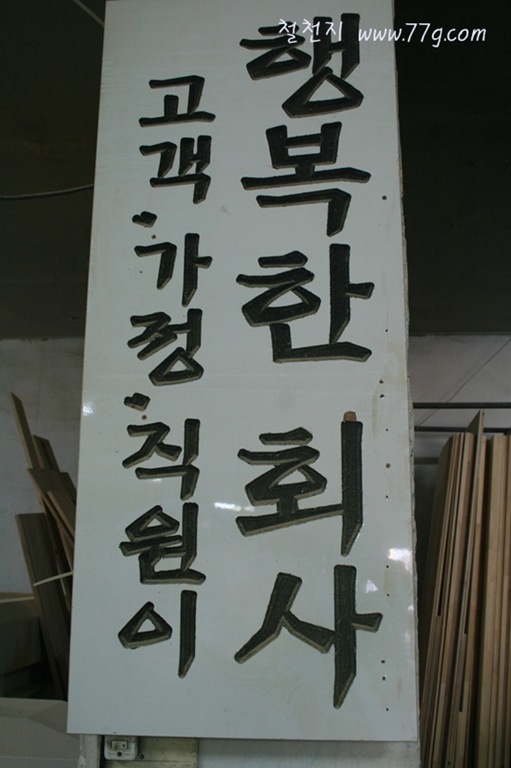 철천지 www.77g.com
고객·가정·직원이
행복한 회사